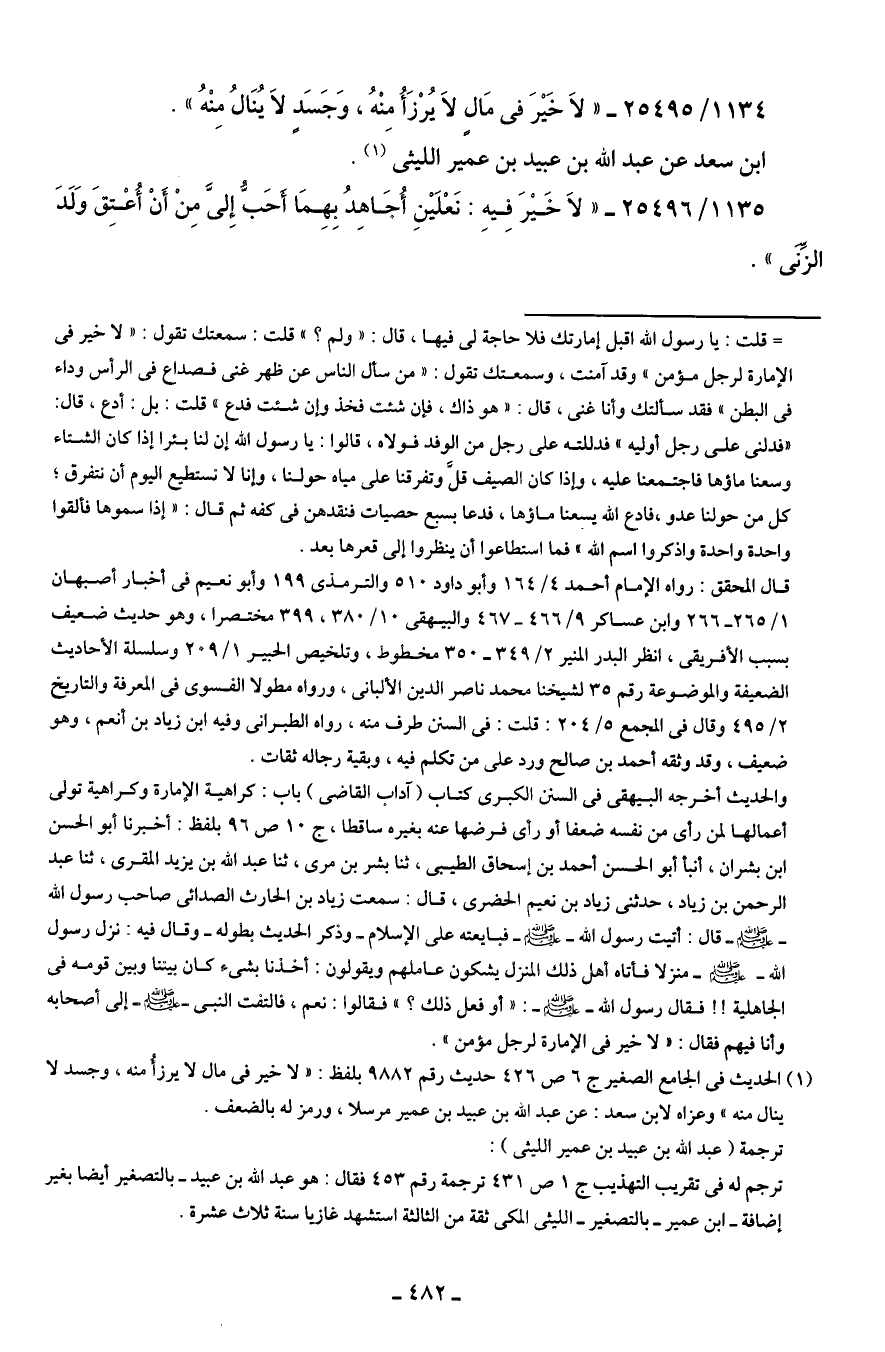 ١١٣٤/ ٢٥٤٩٥ ـ « لاَ خَيْرَ فِى مَالٍ لاَ يُرْزَأُ مِنْهُ ، وَجَسَدٍ لاَ يُنَالُ مِنْهُ » .
ابن سعد عن عبد الله بن عبيد بن عمير الليثى (١) .
١١٣٥/ ٢٥٤٩٦ ـ « لاَ خَيْرَ فِيهِ : نَعْلَيْنِ أُجَاهِدُ بِهِمَا أَحَبُّ إِلىَّ مِنْ أَنْ أُعْتِقَ وَلَدَ
الزِّنَى » .
= قلت : يا رسول الله اقبل إمارتك فلا حاجة لى فيها ، قال : « ولم ؟ » قلت : سمعتك تقول : « لا خير فى
الإمارة لرجل مؤمن » وقد آمنت ، وسمعتك تقول : « من سأل الناس عن ظهر غنى فصداع فى الرأس وداء
فى البطن » فقد سألتك وأنا غنى ، قال : « هو ذاك ، فإن شئت فخذ وإن شئت فدع » قلت : بل : أدع ، قال:
«فدلنى على رجل أوليه » فدللته على رجل من الوفد فولاه ، قالوا : يا رسول الله إن لنا بئرا إذا كان الشتاء
وسعنا ماؤها فاجتمعنا عليه ، وإذا كان الصيف قلَّ وتفرقنا على مياه حولنا ، وإنا لا نستطيع اليوم أن نتفرق ؛
كل من حولنا عدو ،فادع الله يسعنا ماؤها ، فدعا بسبع حصيات فنقدهن فى كفه ثم قال : « إذا سموها فألقوا
واحدة واحدة واذكروا اسم الله » فما استطاعوا أن ينظروا إلى قعرها بعد .
قال المحقق : رواه الإمام أحمد ٤/ ١٦٤ وأبو داود ٥١٠ والترمذى ١٩٩ وأبو نعيم فى أخبار أصبهان
١/ ٢٦٥ـ ٢٦٦ وابن عساكر ٩/ ٤٦٦ ـ ٤٦٧ والبيهقى ١٠/ ٣٨٠ ، ٣٩٩ مختصرا ، وهو حديث ضعيف
بسبب الأفريقى ، انظر البدر المنير ٢/ ٣٤٩ ـ ٣٥٠ مخطوط ، وتلخيص الحبير ١/ ٢٠٩ وسلسلة الأحاديث
الضعيفة والموضوعة رقم ٣٥ لشيخنا محمد ناصر الدين الألبانى ، ورواه مطولا الفسوى فى المعرفة والتاريخ
٢/ ٤٩٥ وقال فى المجمع ٥/ ٢٠٤ : قلت : فى السنن طرف منه ، رواه الطبرانى وفيه ابن زياد بن أنعم ، وهو
ضعيف ، وقد وثقه أحمد بن صالح ورد على من تكلم فيه ، وبقية رجاله ثقات .
والحديث أخرجه البيهقى فى السنن الكبرى كتاب ( آداب القاضى ) باب : كراهية الإمارة وكراهية تولى
أعمالها لمن رأى من نفسه ضعفا أو رأى فرضها عنه بغيره ساقطا ، ج ١٠ ص ٩٦ بلفظ : أخبرنا أبو الحسن
ابن بشران ، أنبأ أبو الحسن أحمد بن إسحاق الطيبى ، ثنا بشر بن مرى ، ثنا عبد الله بن يزيد المقرى ، ثنا عبد
الرحمن بن زياد ، حدثنى زياد بن نعيم الحضرى ، قال : سمعت زياد بن الحارث الصدائى صاحب رسول الله
ـ ﷺ ـ قال : أتيت رسول الله ـ ﷺ ـ فبايعته على الإسلام ـ وذكر الحديث بطوله ـ وقال فيه : نزل رسول
الله ـ ﷺ ـ منزلا فأتاه أهل ذلك المنزل يشكون عاملهم ويقولون : أخذنا بشىء كان بيننا وبين قومه فى
الجاهلية !! فقال رسول الله ـ ﷺ ـ : « أو فعل ذلك ؟ » فقالوا : نعم ، فالتفت النبى ـ ﷺ ـ إلى أصحابه
وأنا فيهم فقال : « لا خير فى الإمارة لرجل مؤمن » .
(١) الحديث فى الجامع الصغير ج ٦ ص ٤٢٦ حديث رقم ٩٨٨٢ بلفظ : « لا خير فى مال لا يرزأُ منه ، وجسد لا
ينال منه » وعزاه لابن سعد : عن عبد الله بن عبيد بن عمير مرسلا ، ورمز له بالضعف .
ترجمة ( عبد الله بن عبيد بن عمير الليثى ) :
ترجم له فى تقريب التهذيب ج ١ ص ٤٣١ ترجمة رقم ٤٥٣ فقال : هو عبد الله بن عبيد ـ بالتصغير أيضا بغير
إضافة ـ ابن عمير ـ بالتصغير ـ الليثى المكى ثقة من الثالثة استشهد غازيا سنة ثلاث عشرة .
ـ ٤٨٢ ـ